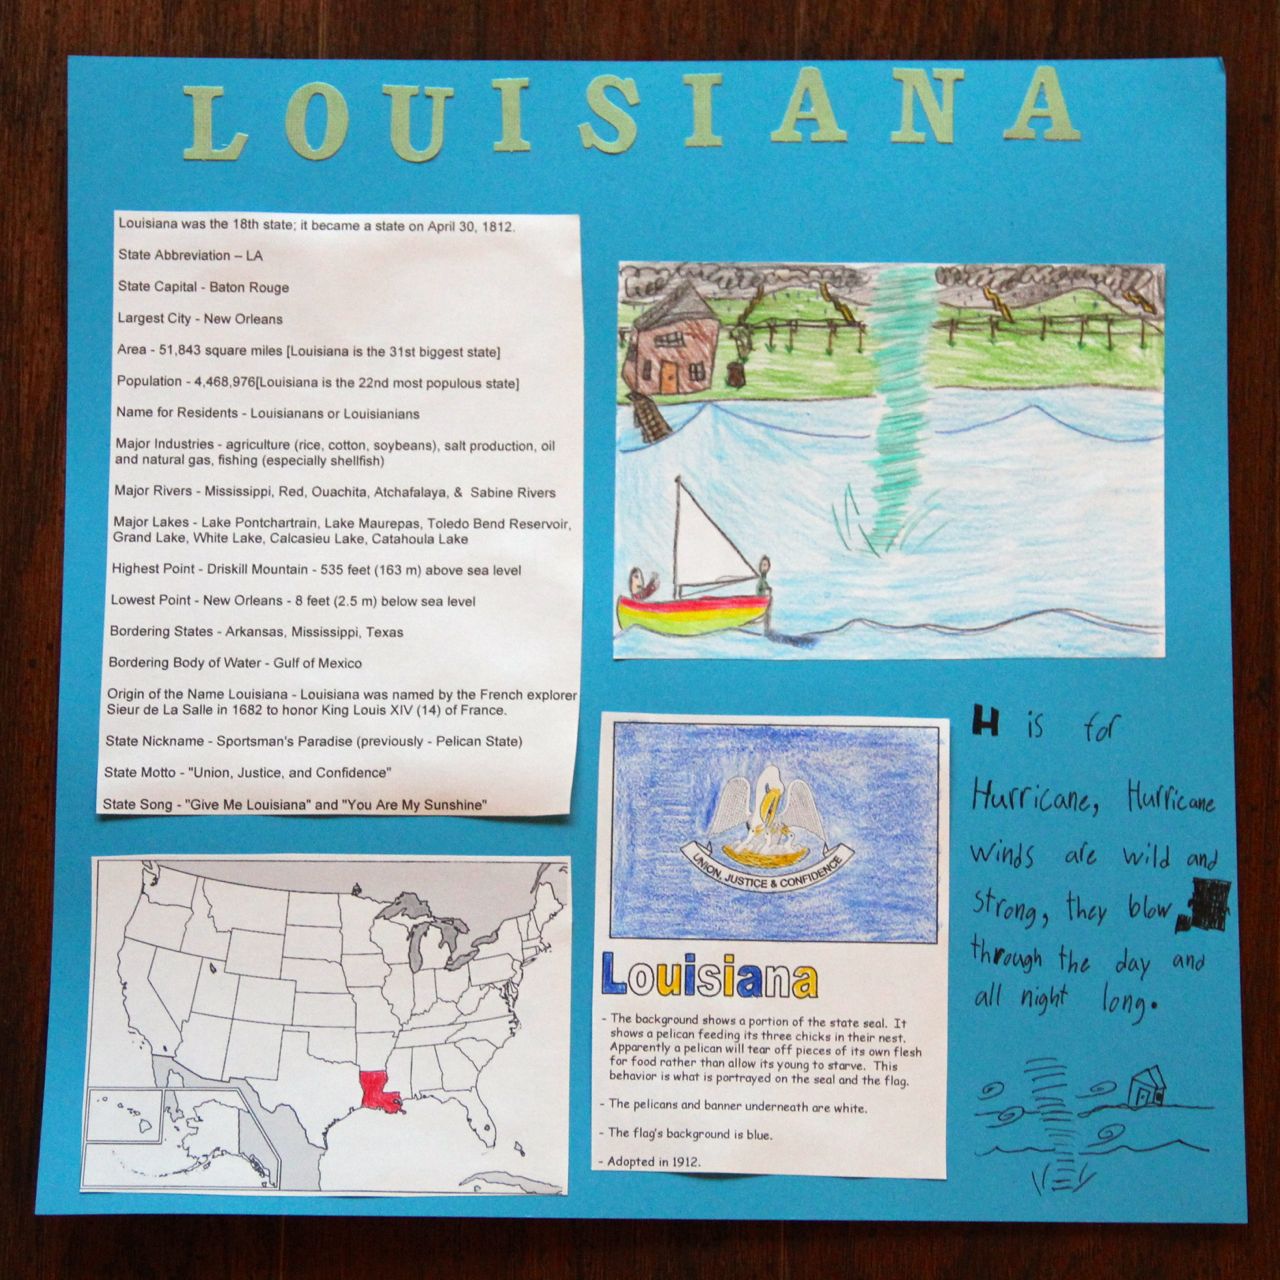 LOUISIANA
Louisiana was the 18th state; it became a state on April 30, 1812.
State Abbreviation – LA
State Capital - Baton Rouge
Largest City - New Orleans
Area - 51,843 square miles [Louisiana is the 31st biggest state]
Population - 4,468,976[Louisiana is the 22nd most populous state]
Name for Residents - Louisianans or Louisianians
Major Industries - agriculture (rice, cotton, soybeans), salt production, oil
and natural gas, fishing (especially shellfish)
Major Rivers - Mississippi, Red, Ouachita, Atchafalaya, & Sabine Rivers
Major Lakes - Lake Pontchartrain, Lake Maurepas, Toledo Bend Reservoir,
Grand Lake, White Lake, Calcasieu Lake, Catahoula Lake
Highest Point - Driskill Mountain - 535 feet (163 m) above sea level
Lowest Point - New Orleans - 8 feet (2.5 m) below sea level
Bordering States - Arkansas, Mississippi, Texas
Bordering Body of Water - Gulf of Mexico
Origin of the Name Louisiana - Louisiana was named by the French explorer
Sieur de La Salle in 1682 to honor King Louis XIV (14) of France.
State Nickname - Sportsman's Paradise (previously - Pelican State)
State Motto - "Union, Justice, and Confidence"
State Song - "Give Me Louisiana" and "You Are My Sunshine"
UNION, JUSTICE & CONFIDENCE
Louisiana
- The background shows a portion of the state seal. It
shows a pelican feeding its three chicks in their nest.
Apparently a pelican will tear off pieces of its own flesh
for food rather than allow its young to starve. This
behavior is what is portrayed on the seal and the flag.
- The pelicans and banner underneath are white.
- The flag's background is blue.
- Adopted in 1912.
H is for
Hurricane, Hurricane
winds are wild and
strong, they blow
through the day and
all night long.